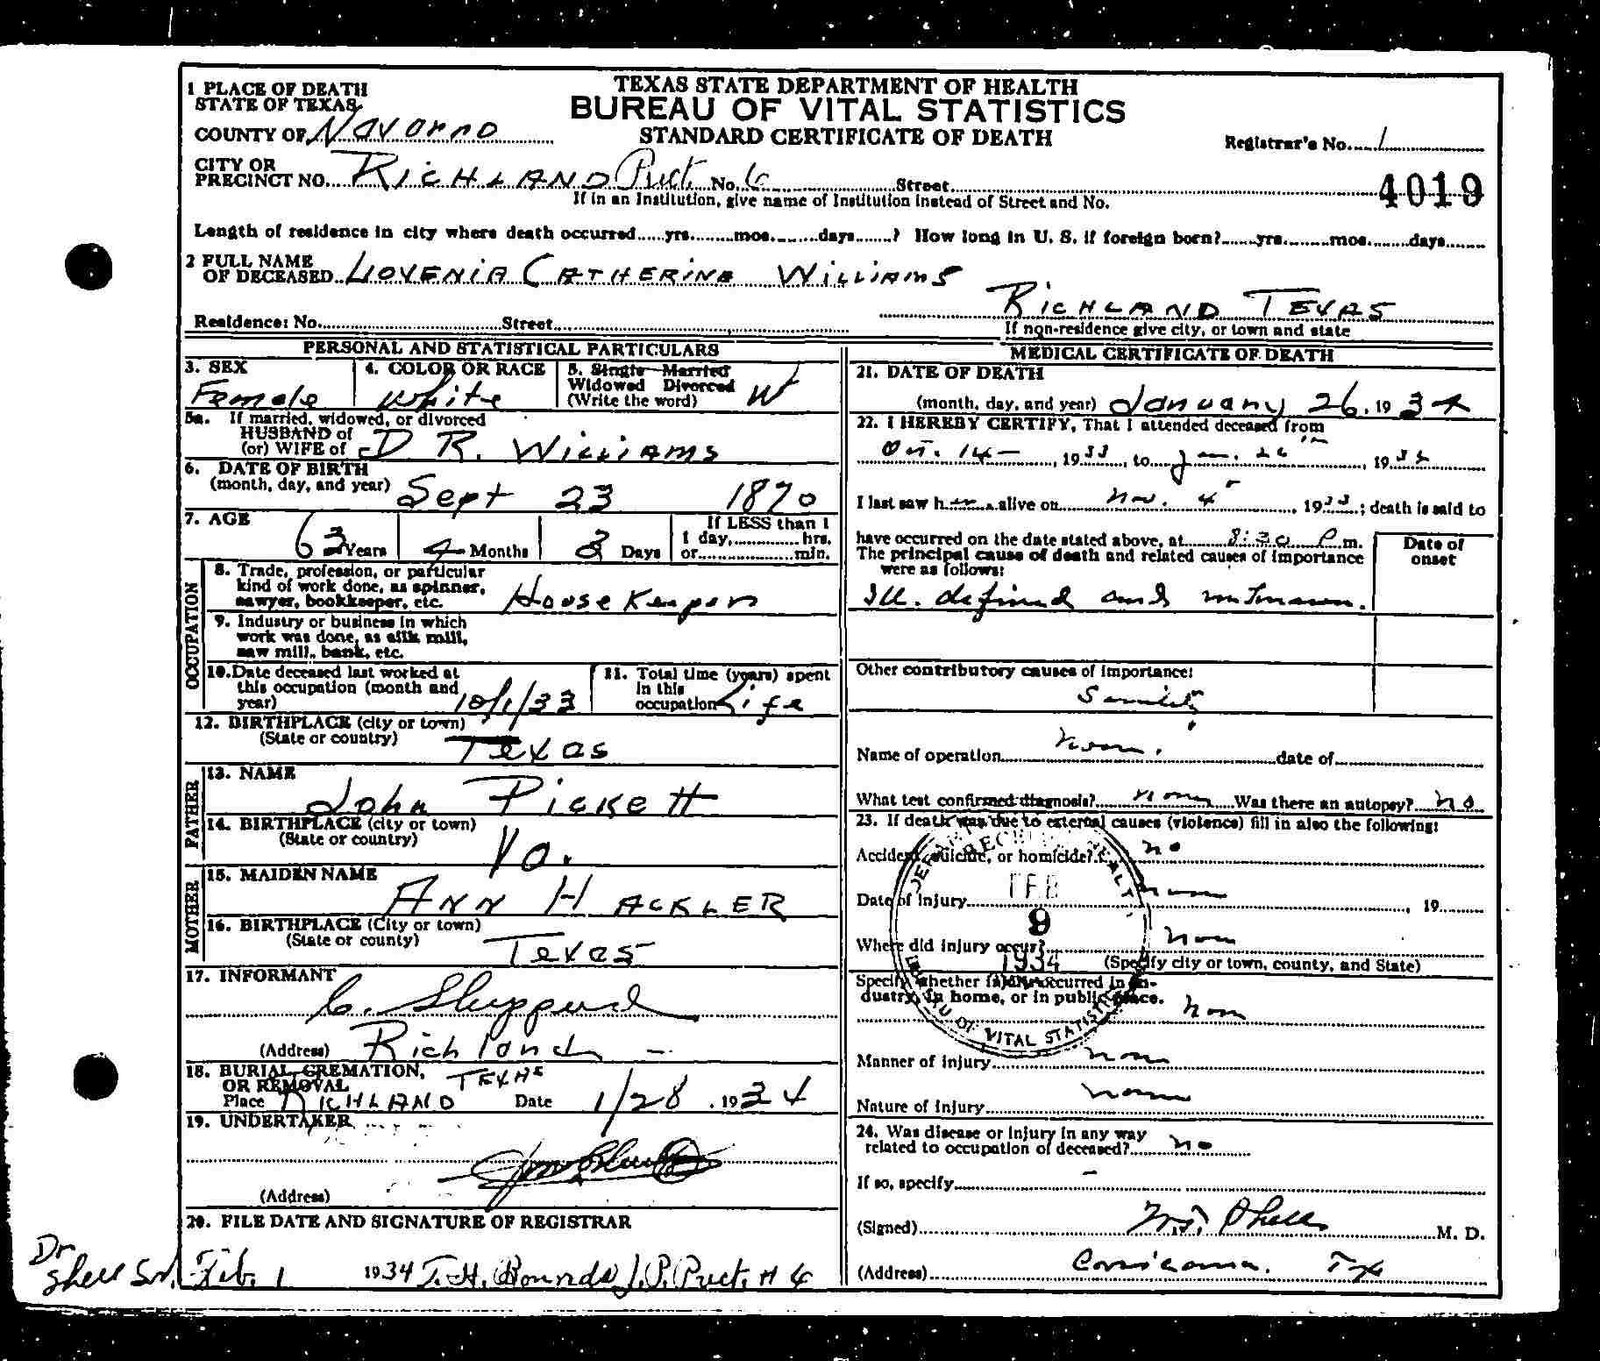 TEXAS STATE DEPARTMENT OF HEALTH
BUREAU OF VITAL STATISTICS
STANDARD CERTIFICATE OF DEATH
1 PLACE OF DEATH
STATE OF TEXAS
COUNTY OF Navarro
Registrar's No. 1
CITY OR
PRECINCT NO. RICHLAND Prct. No. 6 Street
4019
If in an Institution, give name of Institution instead of Street and No.
Length of residence in city where death occurred yrs. mos. days ? How long in U. S. if foreign born? yrs. mos. days
2 FULL NAME
OF DECEASED LIOVENIA CATHERINE WILLIAMS
Residence: No. Street RICHLAND TEXAS
If non-residence give city, or town and state
PERSONAL AND STATISTICAL PARTICULARS
3. SEX
Female
4. COLOR OR RACE
White
5. Single Married
Widowed Divorced
(Write the word) W
5a. If married, widowed, or divorced
HUSBAND of
(or) WIFE of D. R. WILLIAMS
6. DATE OF BIRTH
(month, day, and year) Sept 23 1870
7. AGE
63 Years 4 Months 3 Days
If LESS than 1
1 day, hrs.
or min.
OCCUPATION
8. Trade, profession, or particular
kind of work done, as spinner,
sawyer, bookkeeper, etc. House Keeper
9. Industry or business in which
work was done, as silk mill,
saw mill, bank, etc.
10. Date deceased last worked at
this occupation (month and
year) 10/1/33
11. Total time (years) spent
in this
occupation Life
12. BIRTHPLACE (city or town)
(State or country) Texas
FATHER
13. NAME
John Pickett
14. BIRTHPLACE (city or town)
(State or country) Va.
MOTHER
15. MAIDEN NAME
ANN HACKLER
16. BIRTHPLACE (City or town)
(State or county) Texas
17. INFORMANT
C. Sheppard
(Address) Richland
18. BURIAL, CREMATION,
OR REMOVAL TEXAS
Place RICHLAND Date 1/28, 1934
19. UNDERTAKER
(Address)
20. FILE DATE AND SIGNATURE OF REGISTRAR
Feb. 1 1934 T. H. Rounds J. P. Prct. # 6
Dr
Shell Sr.
MEDICAL CERTIFICATE OF DEATH
21. DATE OF DEATH
(month, day, and year) January 26, 1934
22. I HEREBY CERTIFY, That I attended deceased from
Oct. 14 , 1933, to Jan. 26 , 193
I last saw h alive on Nov. 4 , 1933; death is said to
have occurred on the date stated above, at 8:30 P m.
The principal cause of death and related causes of importance
were as follows:
Date of
onset
Ill. defined and unknown.
Other contributory causes of importance:
Senility
Name of operation none. date of
What test confirmed diagnosis? none Was there an autopsy? no
23. If death was due to external causes (violence) fill in also the following:
Accident, suicide, or homicide? no
Date of injury none , 19
Where did injury occur? none
(Specify city or town, county, and State)
Specify whether injury occurred in in-
dustry, in home, or in public place. none
Manner of injury none
Nature of injury none
24. Was disease or injury in any way
related to occupation of deceased? no
If so, specify -
(Signed) Shell M. D.
(Address) Corsicana. Tx
RECEIVED
FEB
9
1934
BUREAU OF VITAL STATISTICS